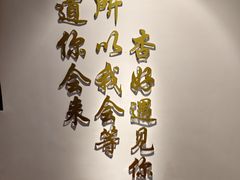 道你会来
所以我会等
杏好遇见你